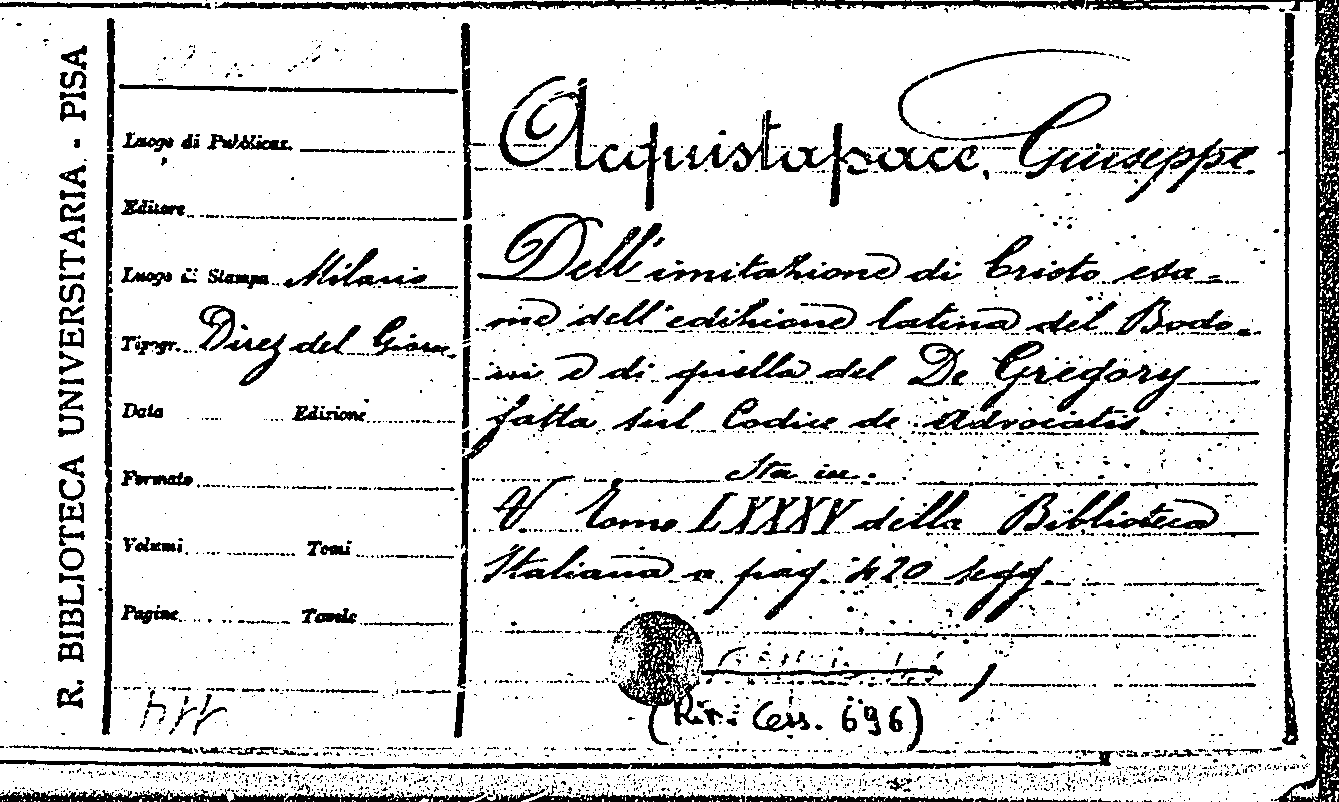 R. BIBLIOTECA UNIVERSITARIA - PISA
Luogo di Pubblicaz.
Editore
Luogo di Stampa Milano
Tipogr. Direz del Giorn.
Data Edizione
Formato
Volumi Tomi
Pagine Tavole
Acquistapace, Giuseppe
Dell'imitazione di Cristo esa=
me dell'edizione latina del Bodo=
ni e di quella del De Gregory
fatta sul Codice de Advocatis
Sta in:
V Tomo LXXXV della Biblioteca
Italiana a pag. 420 segg.
(Riv. Cess. 696)